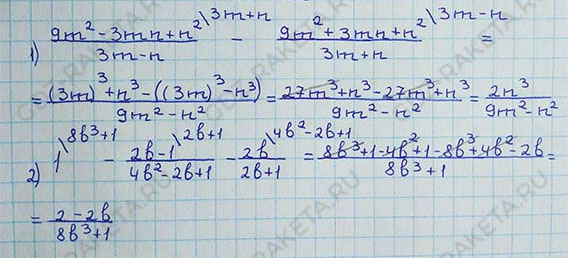 1) (9m² - 3mn + n²)/(3m - n) \3m+n - (9m² + 3mn + n²)/(3m + n) \3m-n =
= ((3m)³ + n³ - ((3m)³ - n³))/(9m² - n²) = (27m³ + n³ - 27m³ + n³)/(9m² - n²) = 2n³/(9m² - n²)
2) 1 \8b³+1 - (2b - 1)/(4b² - 2b + 1) \2b+1 - 2b/(2b + 1) \4b²-2b+1 = (8b³ + 1 - 4b² + 1 - 8b³ + 4b² - 2b)/(8b³ + 1) =
= (2 - 2b)/(8b³ + 1)